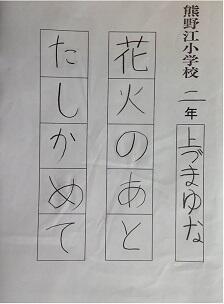 熊野江小学校 二年 上づまゆな
花火のあと
たしかめて